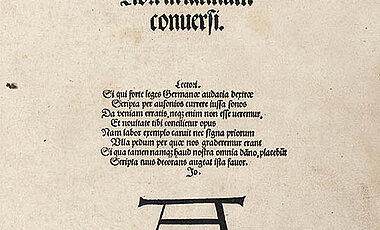 conuersi.
Lectori.
Si qui forte leges Germanæ audacia dextræ
Scripta per ausonios currere iussa sonos
Da veniam erratis, neqꝫ enim non esse veremur,
Et nouitate tibi concilietur opus
Nam labor exemplo caruit nec signa priorum
Vlla pedum per quæ nos graderemur erant
Si qua tamen namqꝫ haud nostra omnia dāno, placebūt
Scripta tuus decorans augeat ista fauor.
Jo.